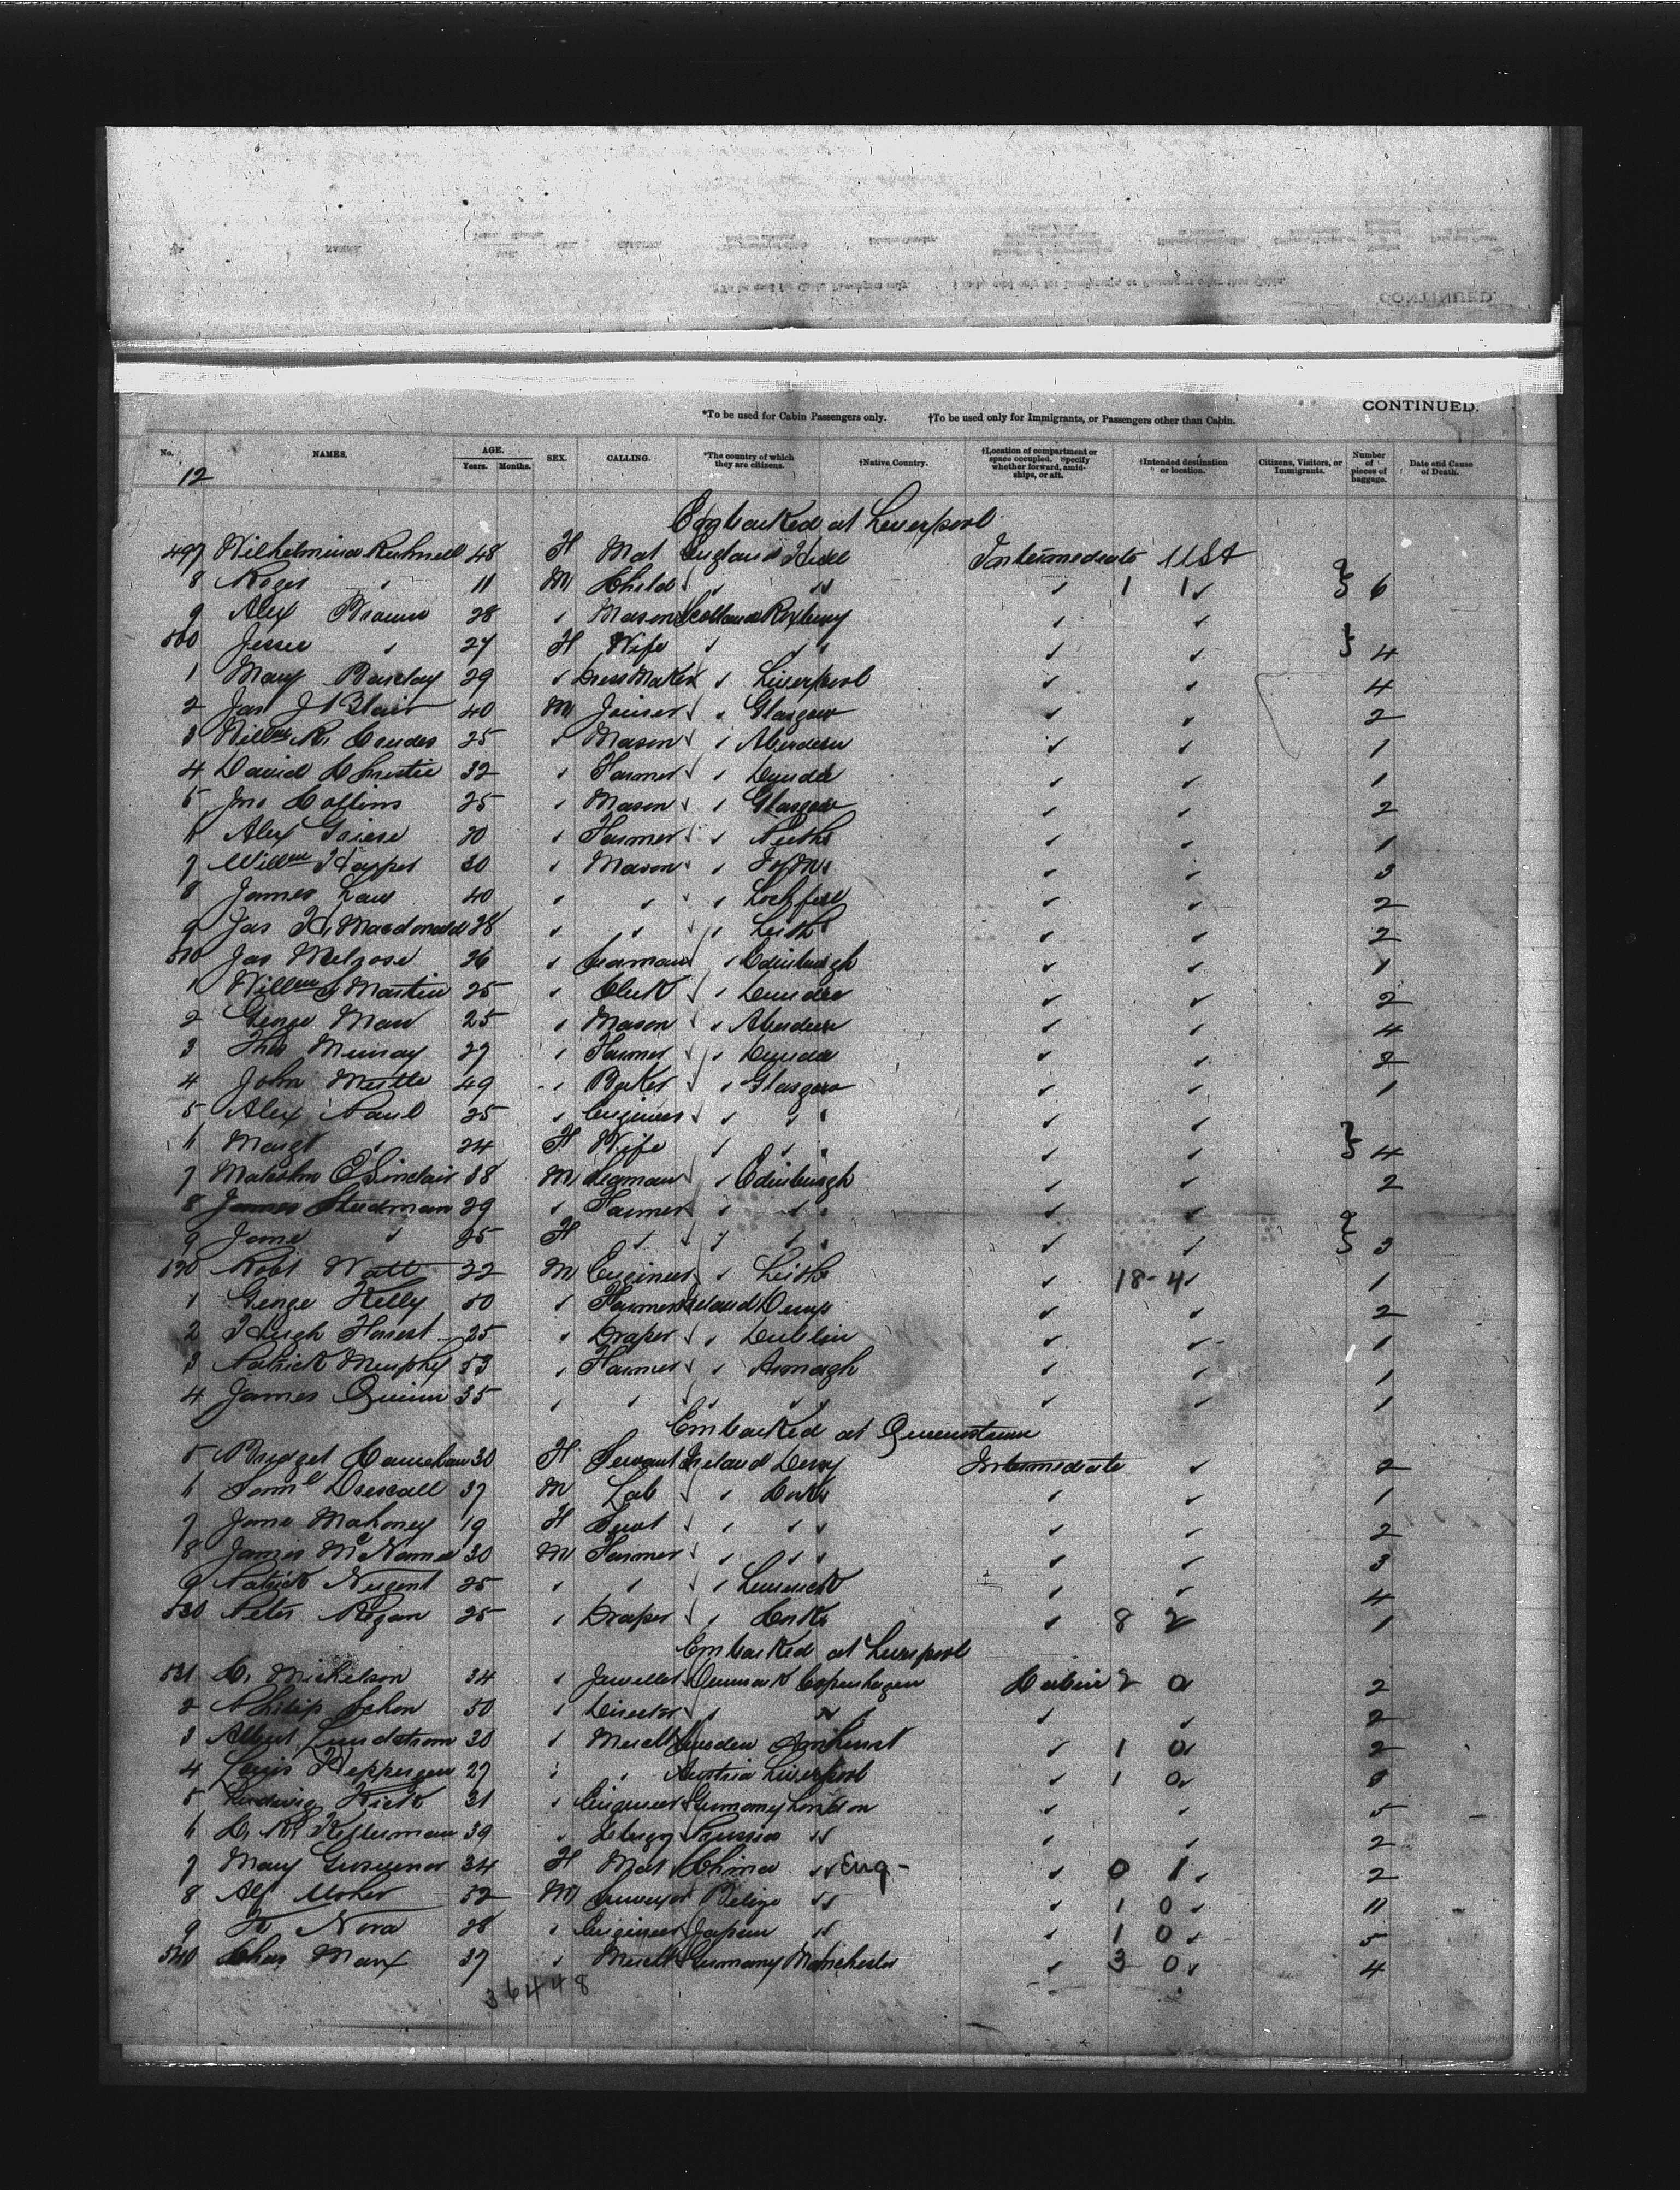 CONTINUED.
*To be used for Cabin Passengers only. †To be used only for Immigrants, or Passengers other than Cabin.
No. NAMES. AGE. Years. Months. SEX. CALLING. *The country of which they are citizens. †Native Country. †Location of compartment or space occupied. Specify whether forward, amidships, or aft. †Intended destination or location. Citizens, Visitors, or Immigrants. Number of pieces of baggage. Date and Cause of Death.
12
Embarked at Liverpool
497 Wilhelmina 48 F Mat England Intermediate USA
8 Roger " 11 M Child " " " 1 1 " 6
9 Alex Brown 28 " Mason Scotland Roxburg " "
500 Jessie " 27 F Wife " " " " 4
1 Mary Barclay 29 " Dress Maker " Liverpool " " 4
2 Jas J Blair 40 M Joiner " Glasgow " " 2
3 Willm R. 25 " Mason " Aberdeen " " 1
4 David Christie 32 " Farmer " Dundee " " 1
5 Jno Collins 25 " Mason " Glasgow " " 2
6 Alex 30 " Farmer " " " 1
7 Willm 30 " Mason " " " 3
8 James Law 40 " " " " " 2
9 Jas H. Macdonald 38 " " " Leith " " 2
510 Jas Melrose 26 " Seaman " Edinburgh " " 1
1 Willm Martin 25 " Clerk " Dundee " " 2
2 George 25 " Mason " Aberdeen " " 4
3 Thos Murray 27 " Farmer " Dundee " " 2
4 John 49 " Baker " Glasgow " " 1
5 Alex Paul 25 " Engineer " " " " "
6 Margt " 24 F Wife " " " " " 4
7 Malcolm C Sinclair 38 M Seaman " Edinburgh " " 2
8 James Steedman 29 " Farmer " " " " "
9 Jane " 25 F " " " " " 3
520 Robt Watt 32 M Engineer " Leith " 18-4 " 1
1 George Kelly 50 " Farmer Ireland Derry " " 2
2 Hugh 25 " Draper " Dublin " " 1
3 Patrick Murphy 53 " Farmer " Armagh " " 1
4 James Quinn 35 " " " " " " 1
Embarked at Queenstown
5 Bridget 30 F Servant Ireland Derry Intermediate " 2
6 Saml Driscoll 37 M Lab " Cork " " 1
7 Jane Mahoney 19 F Servt " " " " " 2
8 James McNamee 30 M Farmer " " " " " 3
9 Patrick Nugent 25 " " " Limerick " " 4
530 Peter Regan 25 " Draper " Cork " 8 2 1
Embarked at Liverpool
531 C. Mickelson 34 " Jeweller Denmark Copenhagen Cabin 2 0 2
2 Philip Schon 50 " Director " " " " 2
3 Albert Lundstrom 30 " Mercht Sweden Amherst " 1 0 2
4 Louis 27 " " Austria Liverpool " 1 0
5 Ludwig 31 " Engineer Germany London " " 5
6 Kellerman 39 " Clergy Prussia " " " 2
7 Mary 34 F Mat China " Eng- " 0 1 " 2
8 Alf 32 M Surveyor Belize " " 1 0 " 11
9 Nora 28 " Engineer Japan " " 1 0 " 5
540 Chas Marx 37 " Mercht Germany Manchester " 3 0 " 4
36448